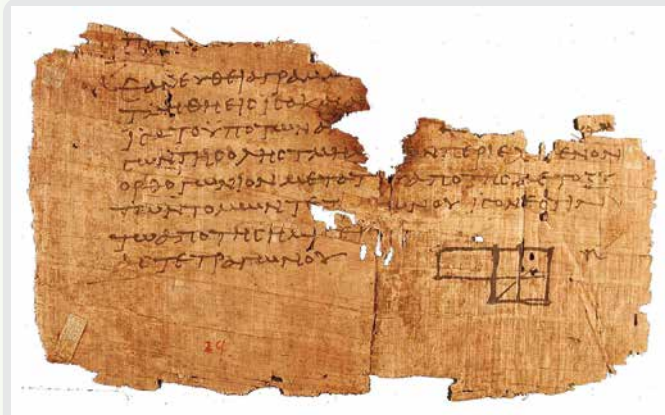 ΕΑΝ ΕΥΘΕΙΑ ΓΡΑΜΜ
ΤΜΗΘΗ ΕΙϹ ΙϹΑ ΚΑΙ
ΙϹΑ ΤΟ ΥΠΟ ΤΩΝ ΑΝ
ϹΩΝ ΤΗϹ ΟΛΗϹ ΤΜΗ ΩΝ ΠΕΡΙΕΧ ΜΕΝΟΝ
ΟΡΘΟΓΩΝΙΟΝ ΜΕΤΑ ΤΟΥ ΑΠΟ ΤΗϹ ΜΕΤΟΞΥ
ΤΩΝ ΤΟΜΩΝ ΤΕΤ ΩΝΟΥ ΙϹΟΝ ΕϹΤΙΝ
ΤΩ ΑΠΟ ΤΗϹ ΗΜΙϹΕΙ
ΑϹ ΤΕΤΡΑΓΩΝΟΥ
24